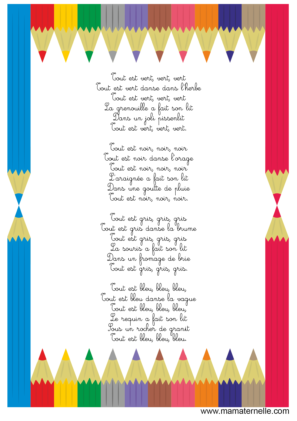 Tout est vert, vert, vert
Tout est vert danse dans l'herbe
Tout est vert, vert, vert
La grenouille a fait son lit
Dans un joli pissenlit
Tout est vert, vert, vert.
Tout est noir, noir, noir.
Tout est noir danse l'orage
Tout est noir, noir, noir
L'araignée a fait son lit
Dans une goutte de pluie
Tout est noir, noir, noir.
Tout est gris, gris, gris
Tout est gris danse la brume
Tout est gris, gris, gris
La souris a fait son lit
Dans un fromage de brie
Tout est gris, gris, gris.
Tout est bleu, bleu, bleu,
Tout est bleu danse la vague
Tout est bleu, bleu, bleu,
Le requin a fait son lit
Sous un rocher de granit
Tout est bleu, bleu, bleu.
www.mamaternelle.com